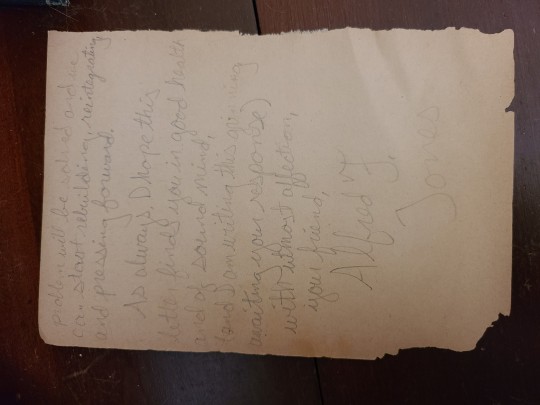 problem will be solved and we
can start rebuilding, reintegrating
and pressing forward.
As always I hope this
letter finds you in good health
and of sound mind,
(and I am writing this grinning
awaiting your response)
with utmost affection,
your friend,
Alfred Y.
Jones